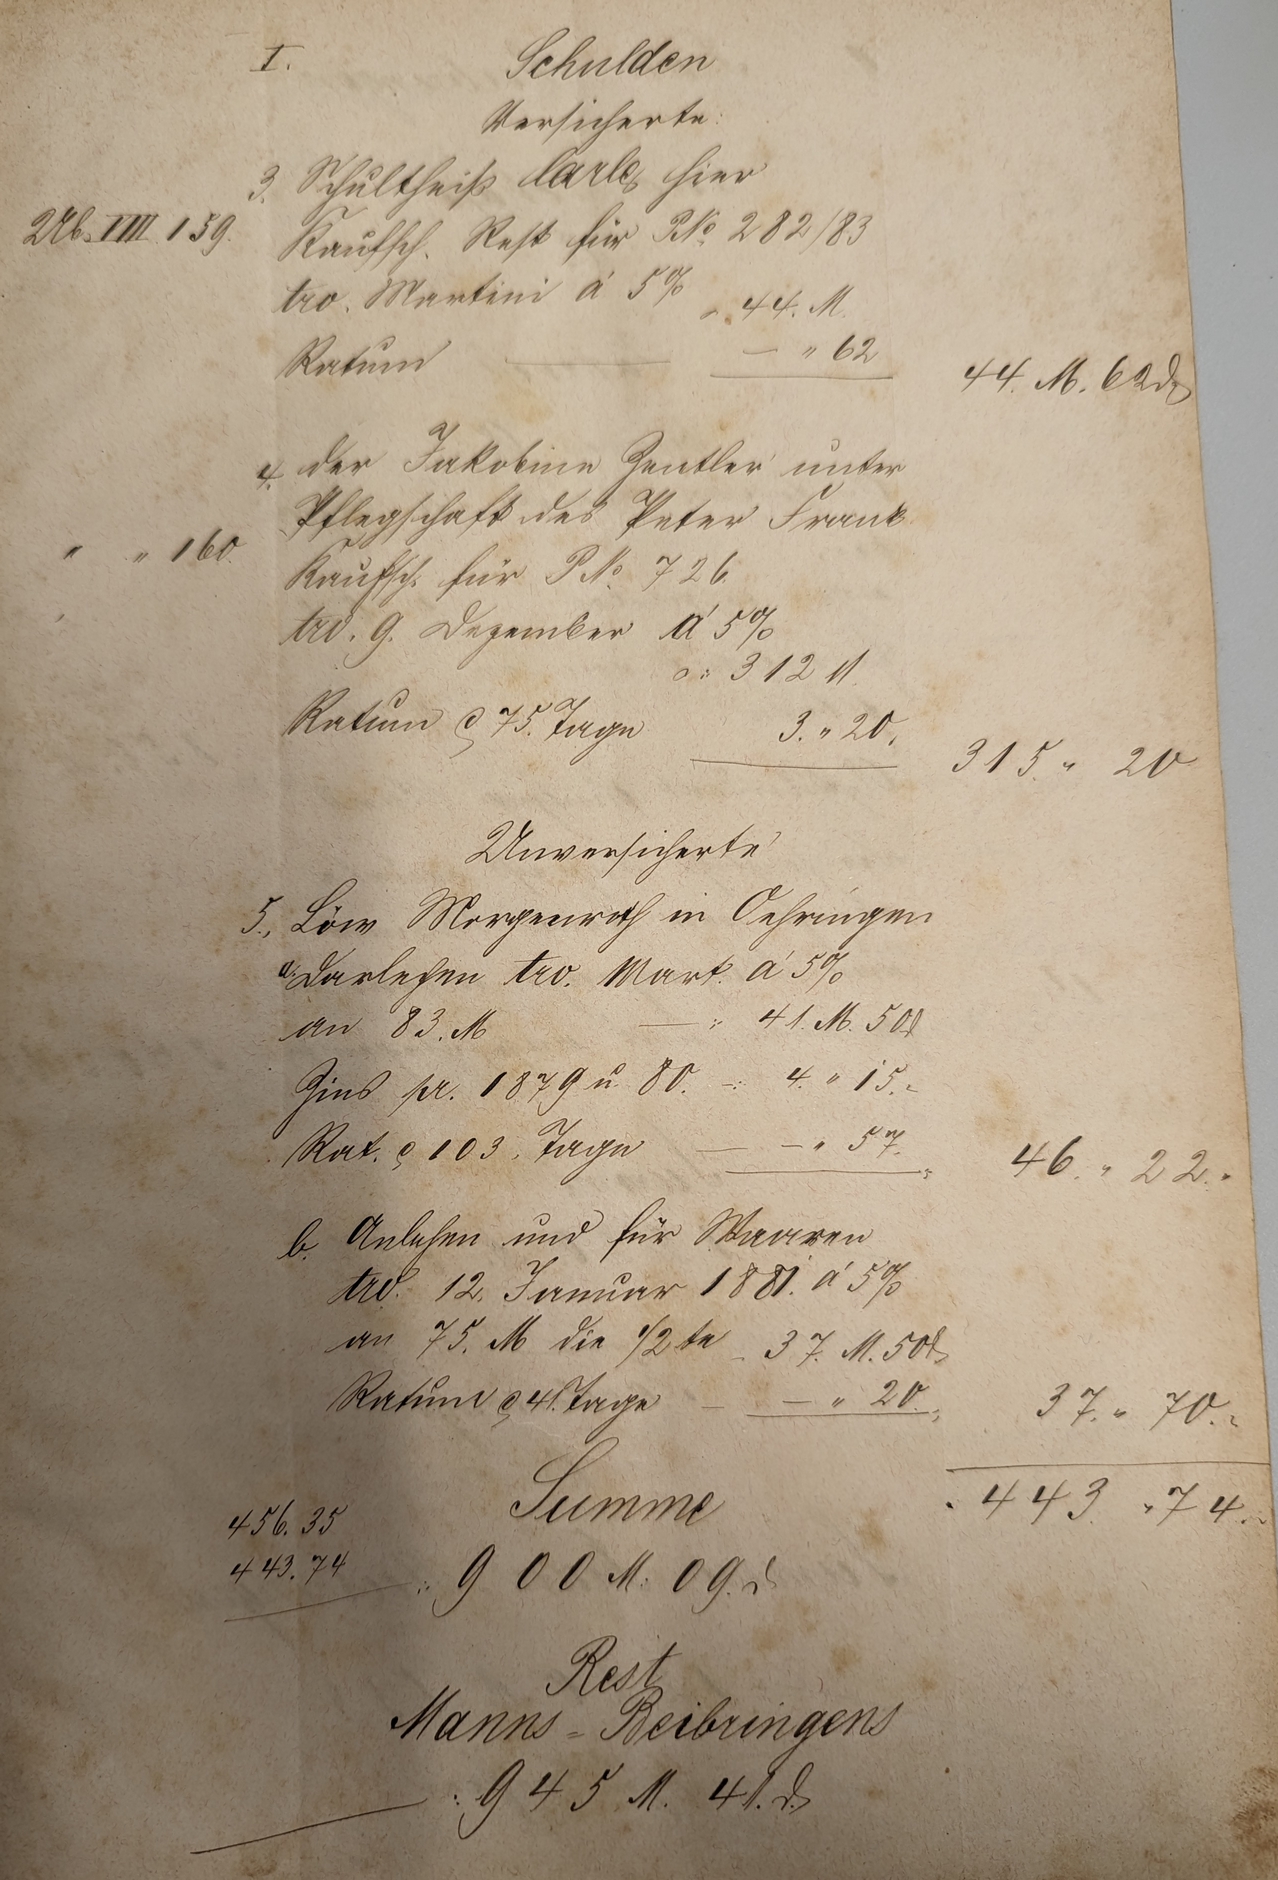 I. Schulden
Versicherte:
3. Schultheiß Carle, hier
Ub. VIII 159. Kaufsch. Rest für PNo. 282/83
tro. Martini á 5% 44. M.
Ratum — " 62 44. M. 62 d
4. der Jakobine Zentler unter
Pflegschaft des Peter Frank
" " 160. Kaufsch. für PNo. 726.
tro. 9. Dezember á 5%
: 312 M.
Ratum 75. Tage 3. " 20. 315 " 20
Unversicherte
5., Löw Morgenroth in Oehringen
a. Darlehen tro. Mart. á 5%
an 83. M —: 41. M. 50 d
Zins pr. 1879 u. 80. —: 4. " 15. "
Rat. 103. Tage — " 57. 46. " 22. "
b. Anlehen und für Waaren
tro. 12. Januar 1881. á 5%
an 75. M die 1/2 te 37. M. 50 d
Ratum 41. Tage — " 20. 37. " 70. "
Summe 443 " 74. "
456. 35
443. 74 : 900 M. 09. d
Rest
Manns-Beibringens
: 945 M. 41. d.